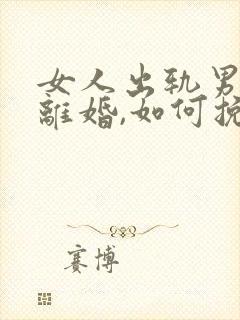 女人出轨男
離婚,如何挽
赛博